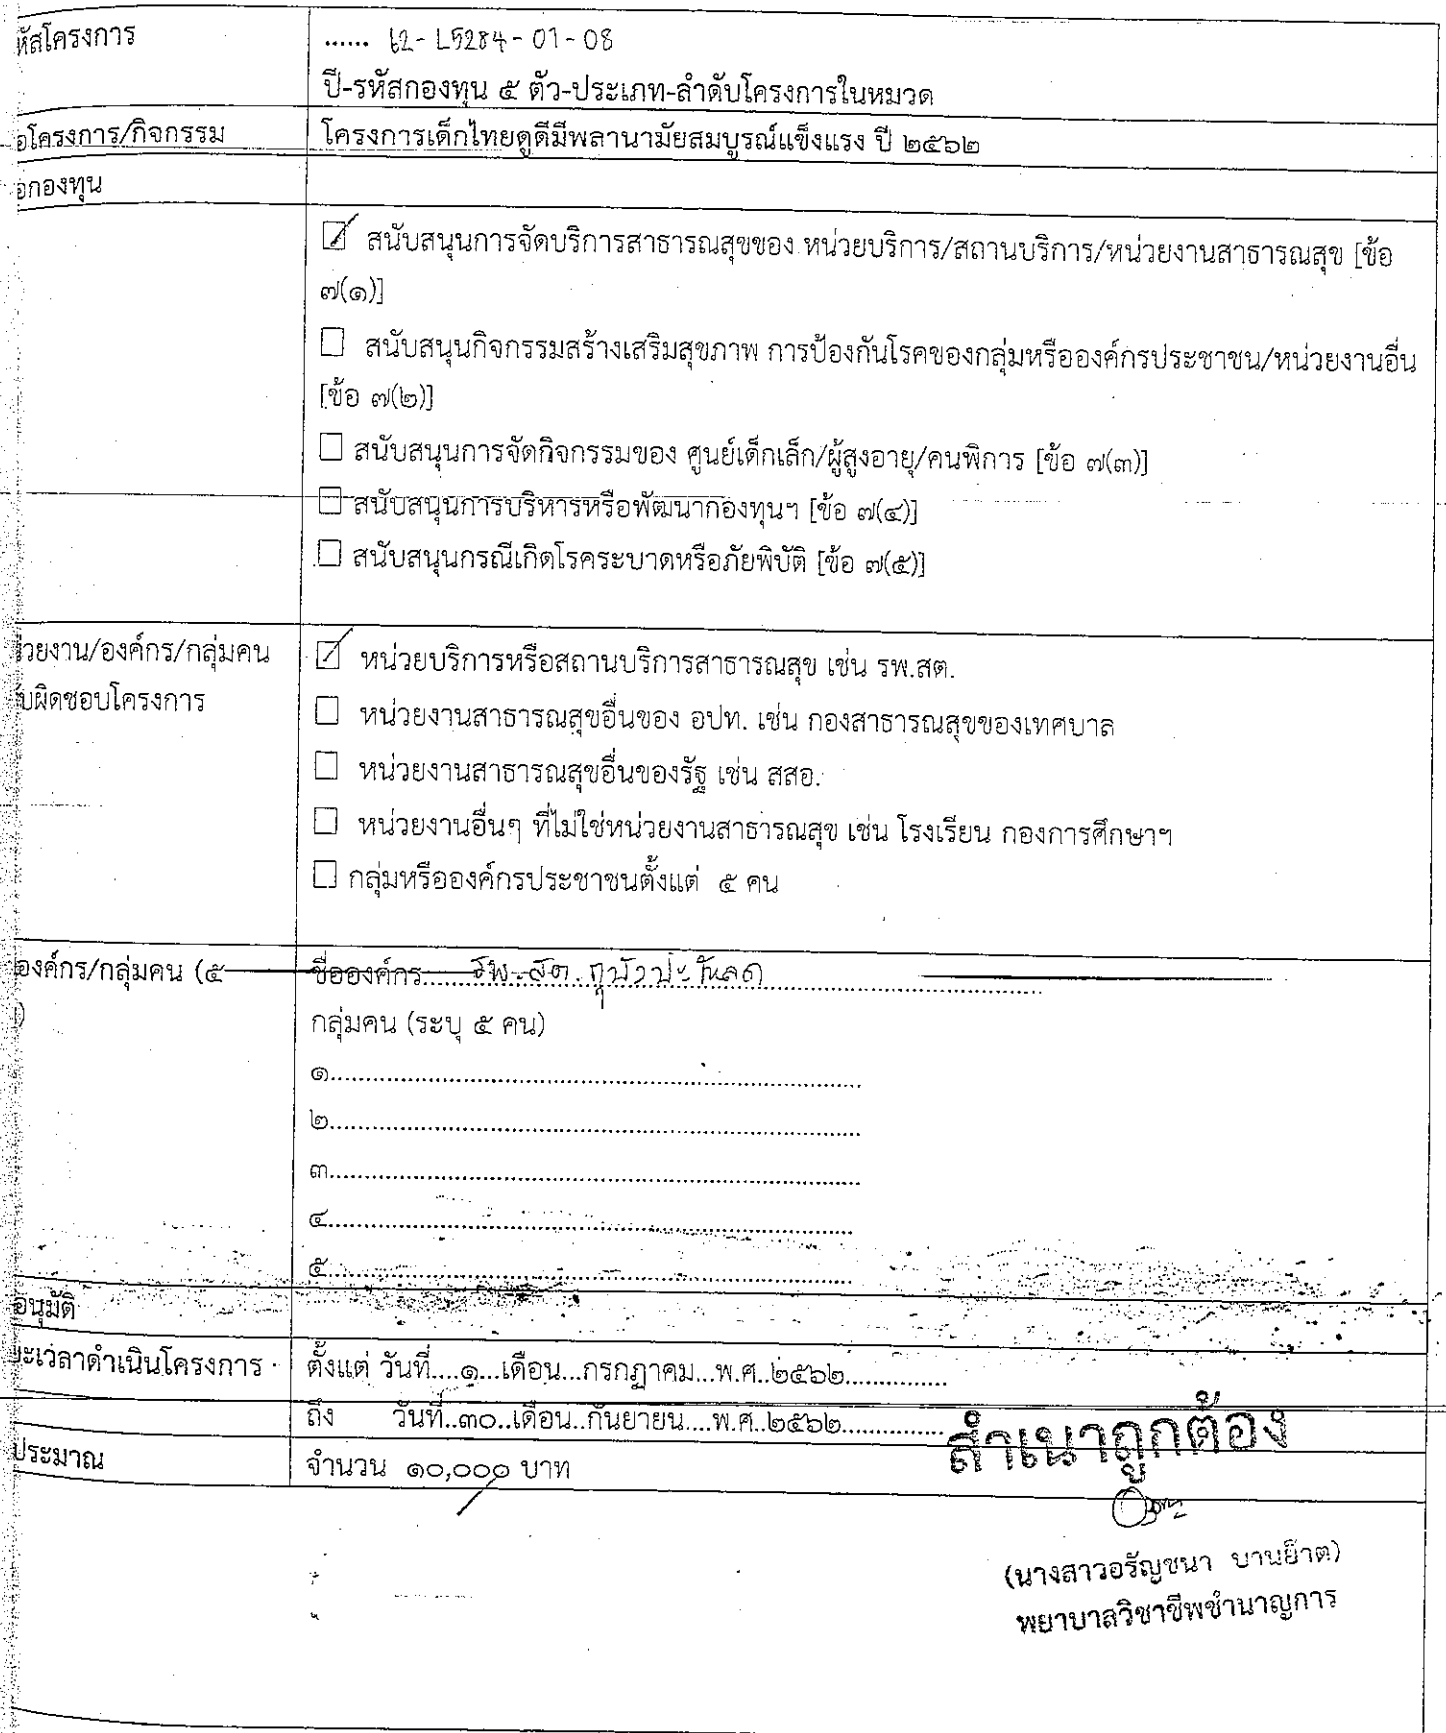 หัสโครงการ
...... 62-L5284-01-08
ปี-รหัสกองทุน ๕ ตัว-ประเภท-ลำดับโครงการในหมวด
อโครงการ/กิจกรรม
โครงการเด็กไทยดูดีมีพลานามัยสมบูรณ์แข็งแรง ปี ๒๕๖๒
อกองทุน
☑ สนับสนุนการจัดบริการสาธารณสุขของ หน่วยบริการ/สถานบริการ/หน่วยงานสาธารณสุข [ข้อ
๗(๑)]
☐ สนับสนุนกิจกรรมสร้างเสริมสุขภาพ การป้องกันโรคของกลุ่มหรือองค์กรประชาชน/หน่วยงานอื่น
[ข้อ ๗(๒)]
☐ สนับสนุนการจัดกิจกรรมของ ศูนย์เด็กเล็ก/ผู้สูงอายุ/คนพิการ [ข้อ ๗(๓)]
☐ สนับสนุนการบริหารหรือพัฒนากองทุนฯ [ข้อ ๗(๔)]
☐ สนับสนุนกรณีเกิดโรคระบาดหรือภัยพิบัติ [ข้อ ๗(๕)]
่วยงาน/องค์กร/กลุ่มคน
ับผิดชอบโครงการ
☑ หน่วยบริการหรือสถานบริการสาธารณสุข เช่น รพ.สต.
☐ หน่วยงานสาธารณสุขอื่นของ อปท. เช่น กองสาธารณสุขของเทศบาล
☐ หน่วยงานสาธารณสุขอื่นของรัฐ เช่น สสอ.
☐ หน่วยงานอื่นๆ ที่ไม่ใช่หน่วยงานสาธารณสุข เช่น โรงเรียน กองการศึกษาฯ
☐ กลุ่มหรือองค์กรประชาชนตั้งแต่ ๕ คน
องค์กร/กลุ่มคน (๕
)
ชื่อองค์กร......รพ.สต. กุบังปะโหลด......
กลุ่มคน (ระบุ ๕ คน)
๑......
๒......
๓......
๔......
๕......
อนุมัติ
ยะเวลาดำเนินโครงการ
ตั้งแต่ วันที่....๑...เดือน...กรกฎาคม...พ.ศ..๒๕๖๒...............
ถึง วันที่..๓๐..เดือน..กันยายน....พ.ศ..๒๕๖๒...............
ประมาณ
จำนวน ๑๐,๐๐๐ บาท
สำเนาถูกต้อง
(นางสาวอรัญชนา บานย๊าต)
พยาบาลวิชาชีพชำนาญการ